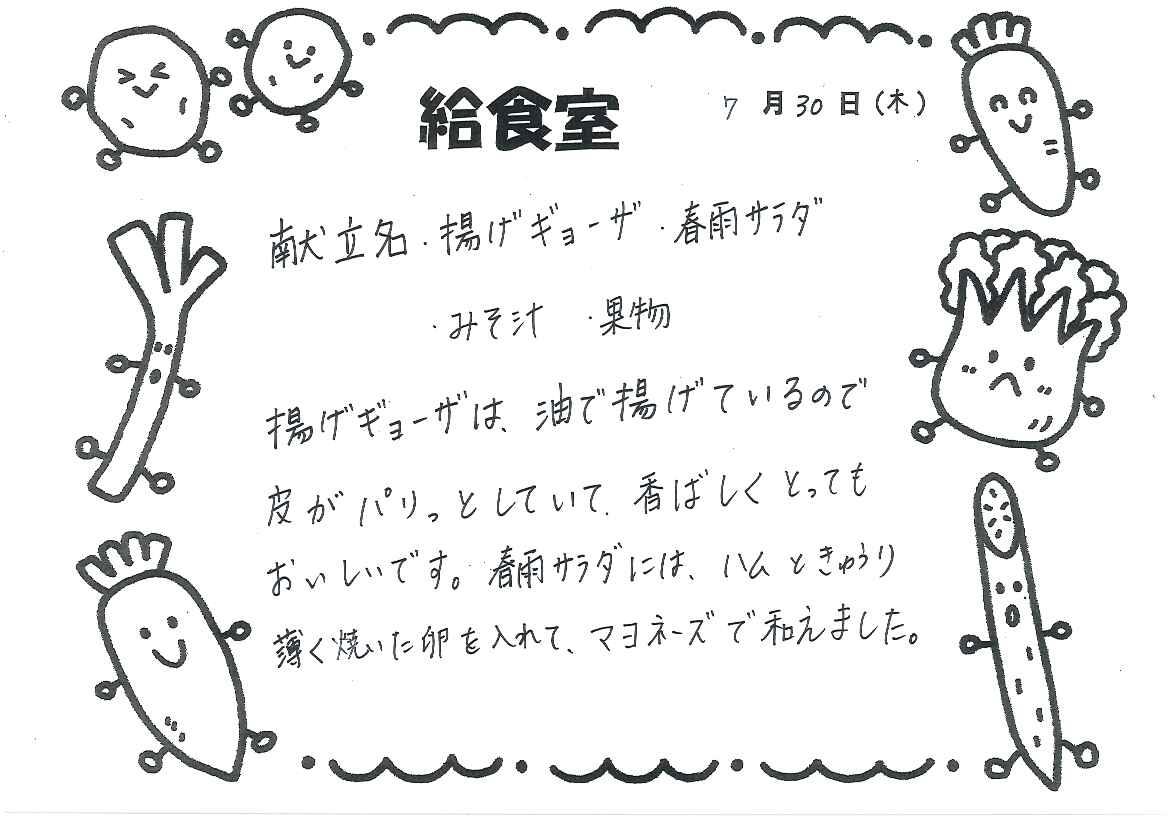 給食室
7月30日(木)
献立名・揚げギョーザ・春雨サラダ
・みそ汁 ・果物
揚げギョーザは、油で揚げているので
皮がパリっとしていて、香ばしくとっても
おいしいです。春雨サラダには、ハムときゅうり
薄く焼いた卵を入れて、マヨネーズで和えました。